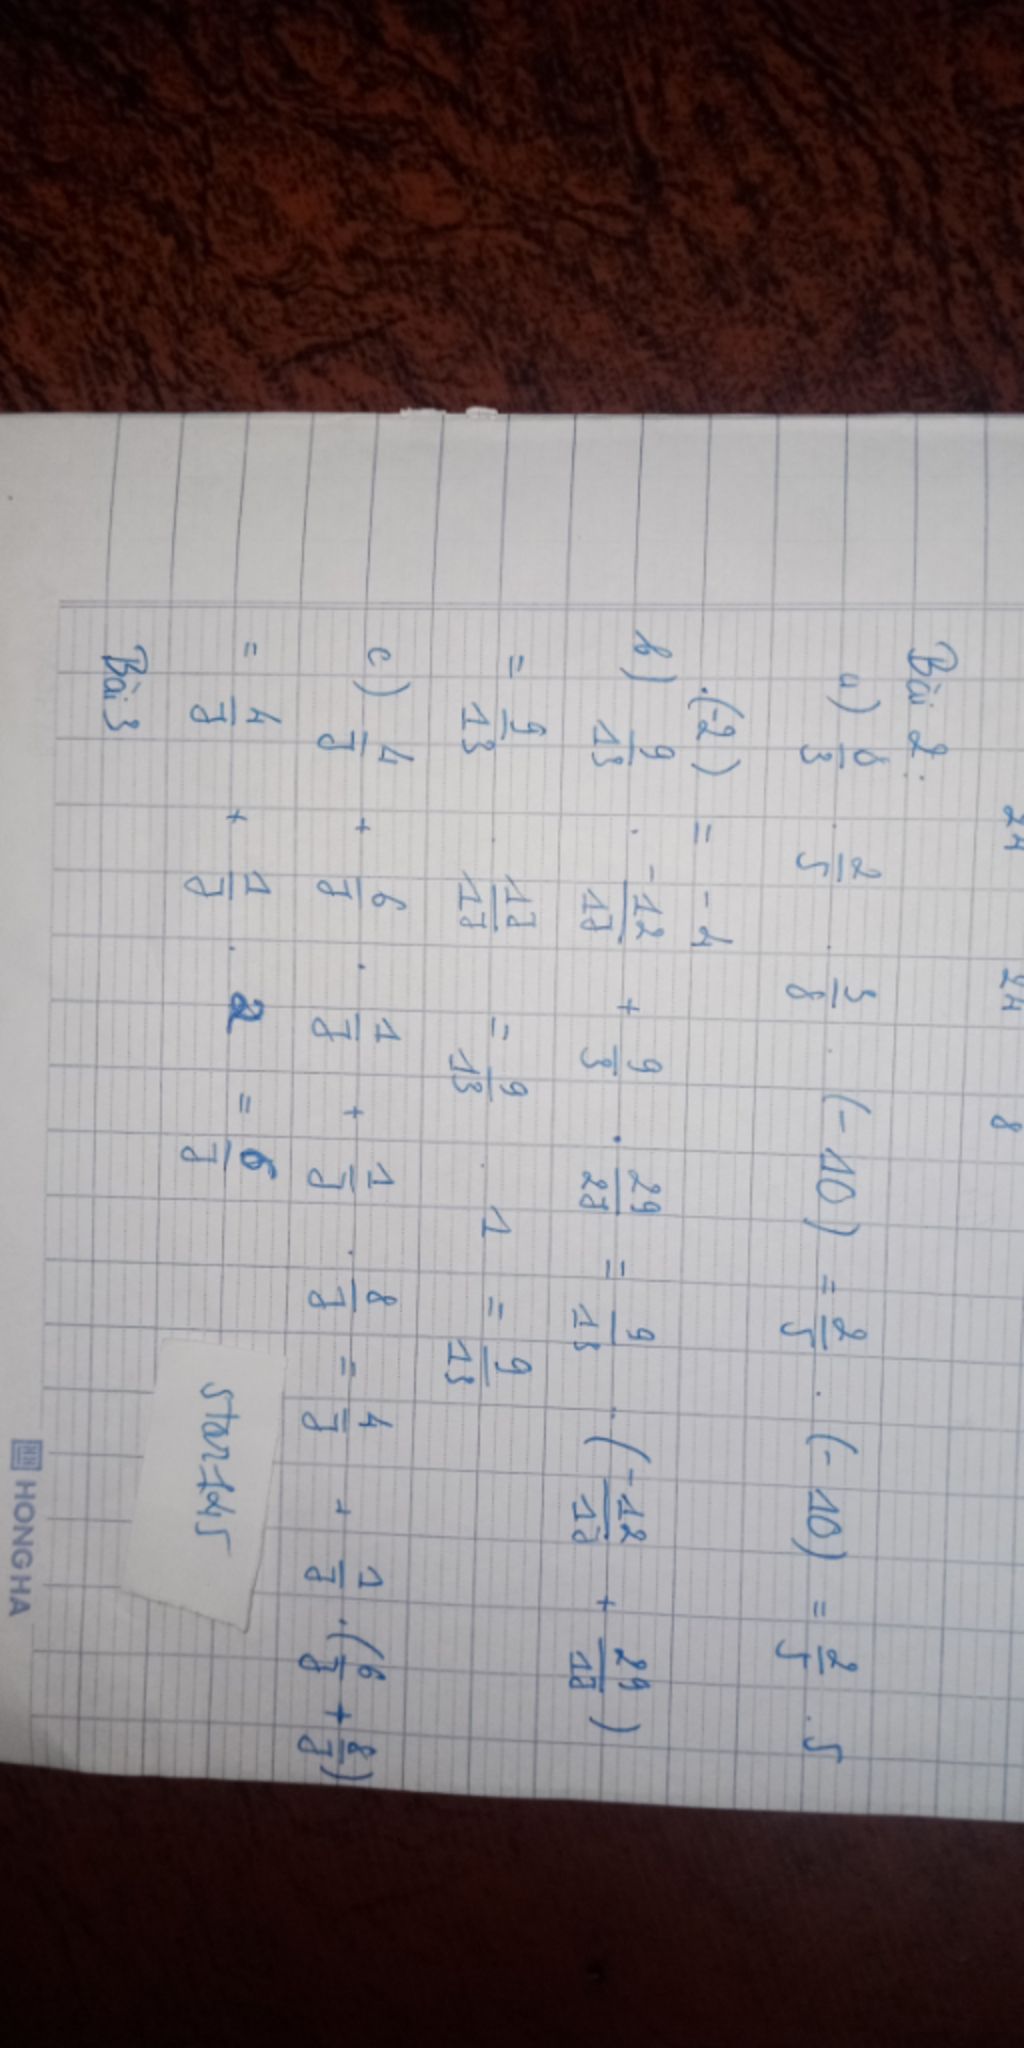 24 24 8
Bài 2:
a) 8/3 . 2/5 . 3/8 . (-10) = 2/5 . (-10) = 2/5 . 5
.(-2) = -4
b) 9/13 . -12/17 + 9/3 . 29/27 = 9/13 . (-12/17 + 29/17)
= 9/13 . 17/17 = 9/13 . 1 = 9/13
c) 4/7 + 6/7 . 1/7 + 1/7 . 8/7 = 4/7 + 1/7 . (6/7 + 8/7)
= 4/7 + 1/7 . 2 = 6/7
Bài 3
Star1245
HONG HA